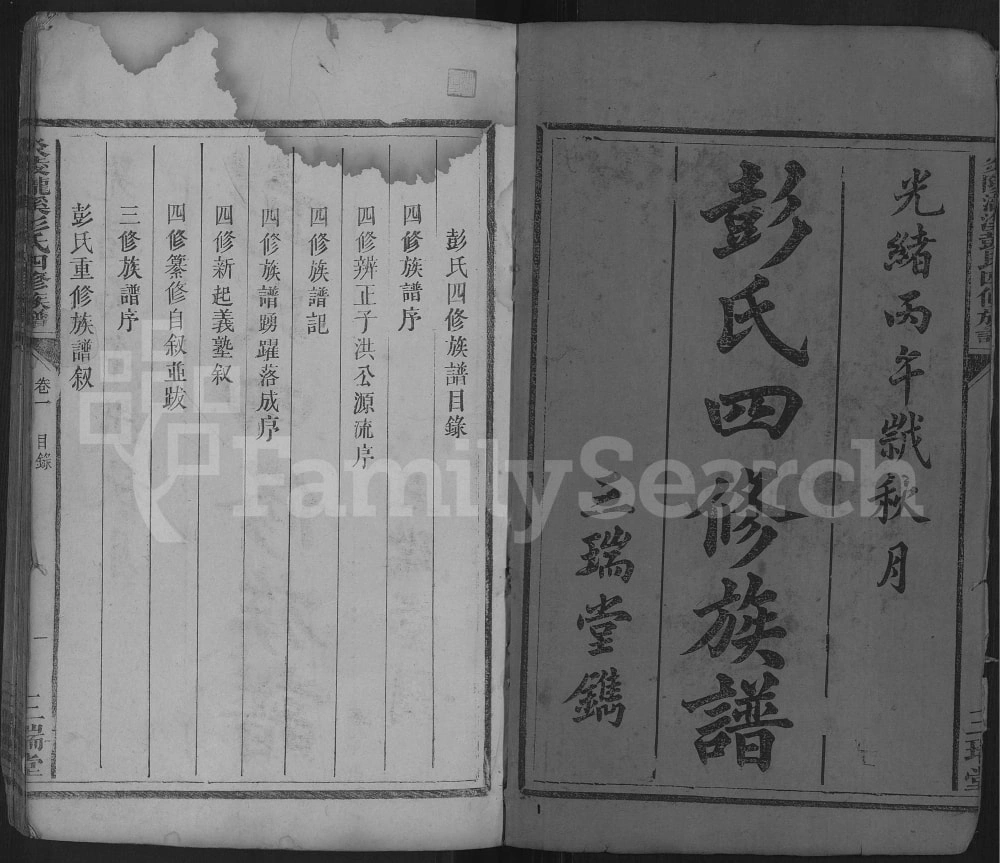 光緒丙午歲秋月
彭氏四修族譜
三瑞堂鐫
彭氏四修族譜目錄
四修族譜序
四修辨正子洪公源流序
四修族譜記
四修族譜踴躍落成序
四修新起義塾叙
四修纂修自叙並跋
三修族譜序
彭氏重修族譜叙
彭氏四修族譜
卷一
目錄
一
三瑞堂
FamilySearch